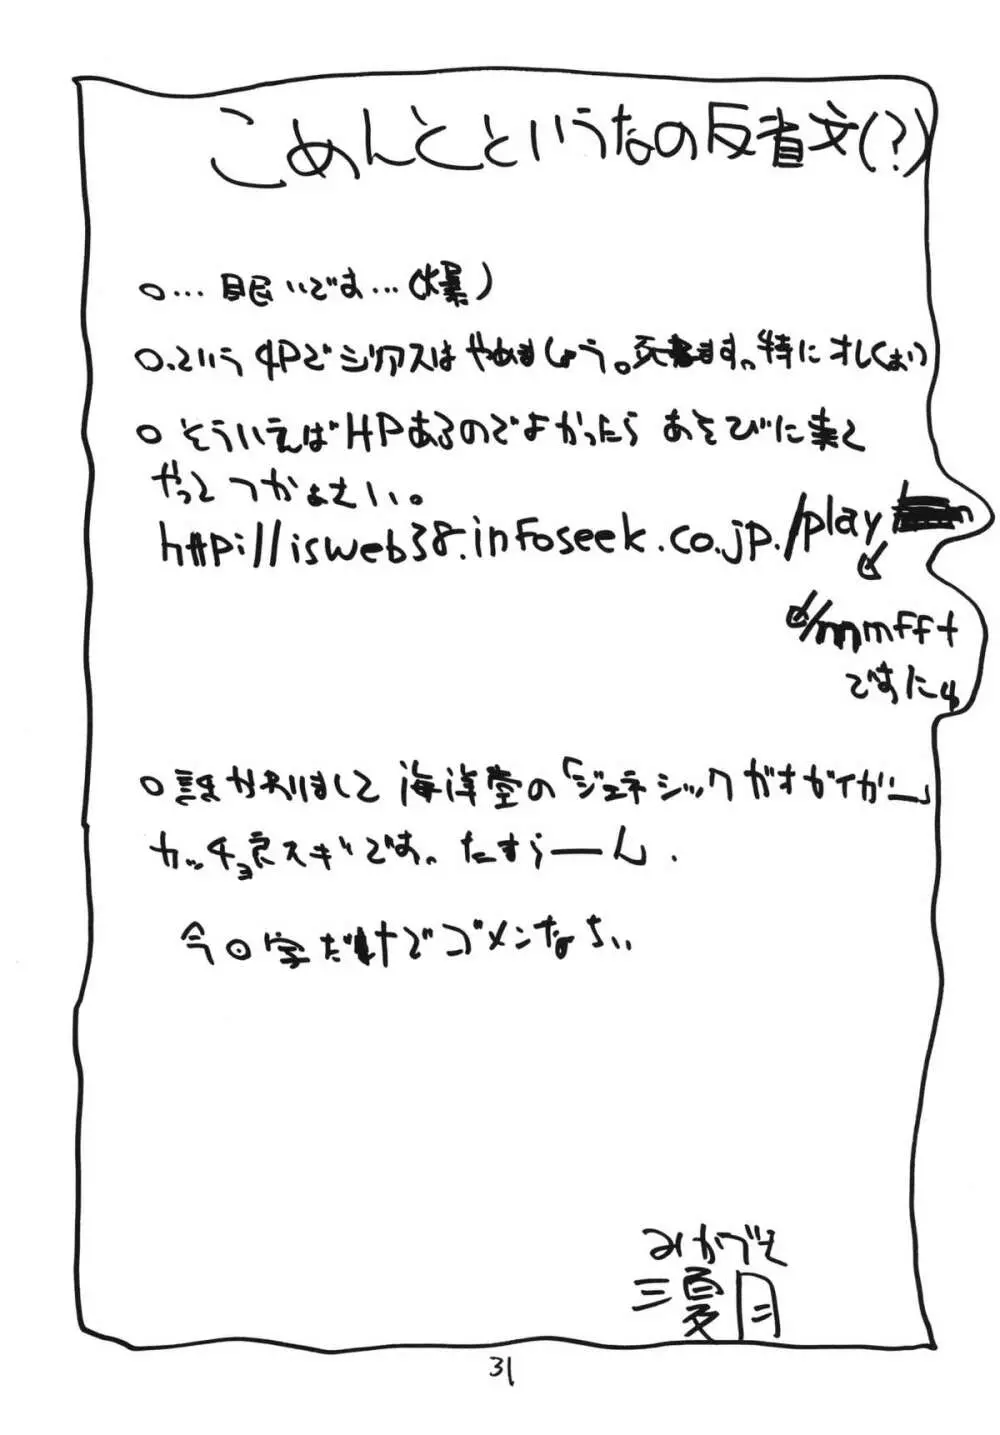 こめんとというなの反省文(?)
○…眠いです…(爆)
○.という4Pでシリアスはやめましょう。死にます。特にオレくおい
○そういえばHPあるのでよかったらあそびに来て
やってつかぁさい。
http://isweb38.infoseek.co.jp./play
/mmfft
ですにゅ
○誰か わりまして 海洋堂の「ジェネシックガオガイガー」
カッチョ良スギです。たすうーん.
今回字だけでゴメンなちい
みかづき
三夏月
31